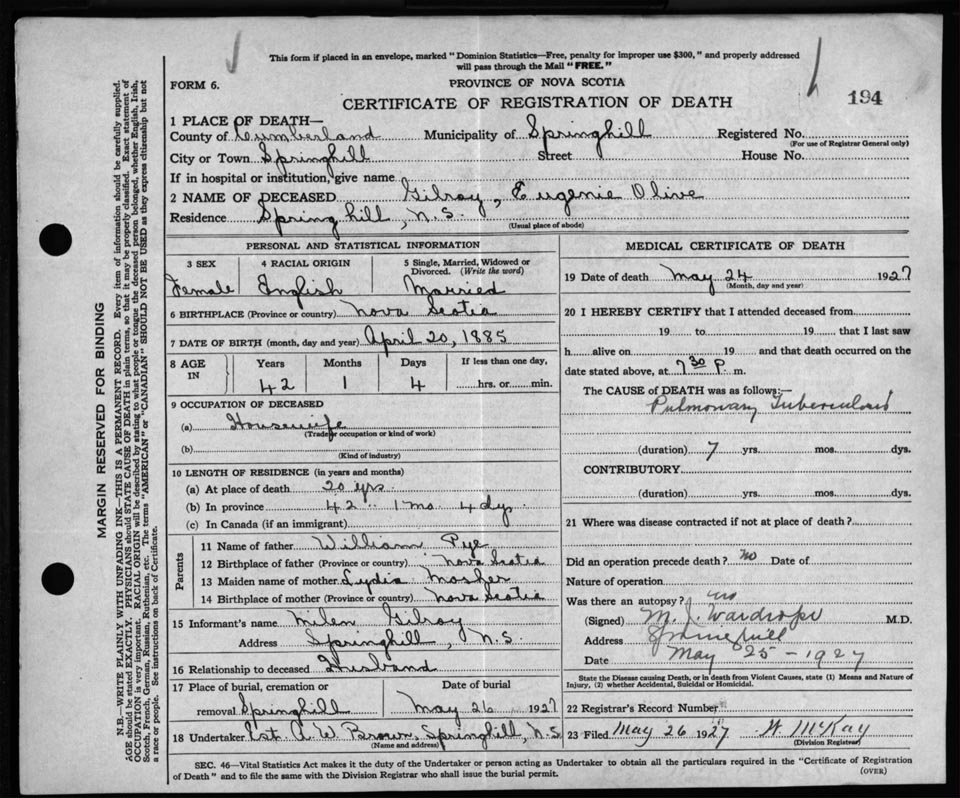 This form if placed in an envelope, marked "Dominion Statistics—Free, penalty for improper use $300," and properly addressed
will pass through the Mail "FREE."
FORM 6.
PROVINCE OF NOVA SCOTIA
CERTIFICATE OF REGISTRATION OF DEATH
194
1 PLACE OF DEATH—
County of Cumberland Municipality of Springhill Registered No.
(For use of Registrar General only)
City or Town Springhill Street House No.
If in hospital or institution, give name
2 NAME OF DECEASED Gilroy, Eugenie Olive
Residence Springhill, N.S.
(Usual place of abode)
PERSONAL AND STATISTICAL INFORMATION
3 SEX 4 RACIAL ORIGIN 5 Single, Married, Widowed or
Divorced. (Write the word)
Female English Married
6 BIRTHPLACE (Province or country) Nova Scotia
7 DATE OF BIRTH (month, day and year) April 20, 1885
8 AGE IN Years Months Days If less than one day,
42 1 4 hrs. or min.
9 OCCUPATION OF DECEASED
(a) Housewife
(Trade or occupation or kind of work)
(b)
(Kind of industry)
10 LENGTH OF RESIDENCE (in years and months)
(a) At place of death 20 yrs.
(b) In province 42 " 1 mo. 4 dys.
(c) In Canada (if an immigrant)
Parents
11 Name of father William Pye
12 Birthplace of father (Province or country) Nova Scotia
13 Maiden name of mother Lydia Mosher
14 Birthplace of mother (Province or country) Nova Scotia
15 Informant's name Milen Gilroy
Address Springhill, N.S.
16 Relationship to deceased Husband
17 Place of burial, cremation or Date of burial
removal Springhill May 26 1927
18 Undertaker Est. A. W. Brown, Springhill, N.S.
(Name and address)
MEDICAL CERTIFICATE OF DEATH
19 Date of death May 24 1927
(Month, day and year)
20 I HEREBY CERTIFY that I attended deceased from
19 to 19 that I last saw
h alive on 19 and that death occurred on the
date stated above, at 7 30 P. m.
The CAUSE of DEATH was as follows:—
Pulmonary Tuberculosis
(duration) 7 yrs. mos. dys.
CONTRIBUTORY
(duration) yrs. mos. dys.
21 Where was disease contracted if not at place of death?
Did an operation precede death? no Date of
Nature of operation
Was there an autopsy? no
(Signed) M. J. Wardrope M.D.
Address Springhill
Date May 25 - 1927
State the Disease causing Death, or in death from Violent Causes, state (1) Means and Nature of
Injury, (2) whether Accidental, Suicidal or Homicidal.
22 Registrar's Record Number
23 Filed May 26 1927 W. McKay
(Division Registrar)
SEC. 46—Vital Statistics Act makes it the duty of the Undertaker or person acting as Undertaker to obtain all the particulars required in the "Certificate of Registration
of Death" and to file the same with the Division Registrar who shall issue the burial permit.
(OVER)
MARGIN RESERVED FOR BINDING
N.B.—WRITE PLAINLY WITH UNFADING INK—THIS IS A PERMANENT RECORD. Every item of information should be carefully supplied.
AGE should be stated EXACTLY. PHYSICIANS should STATE CAUSE OF DEATH in plain terms, so that it may be properly classified. Exact statement of
OCCUPATION is very important. RACIAL ORIGIN will be described by stating to what people or tongue the deceased person belonged, whether English, Irish,
Scotch, French, German, Russian, Ruthenian, etc. The terms "AMERICAN" or "CANADIAN" SHOULD NOT BE USED as they express citizenship but not
a race or people. See instructions on back of Certificate.